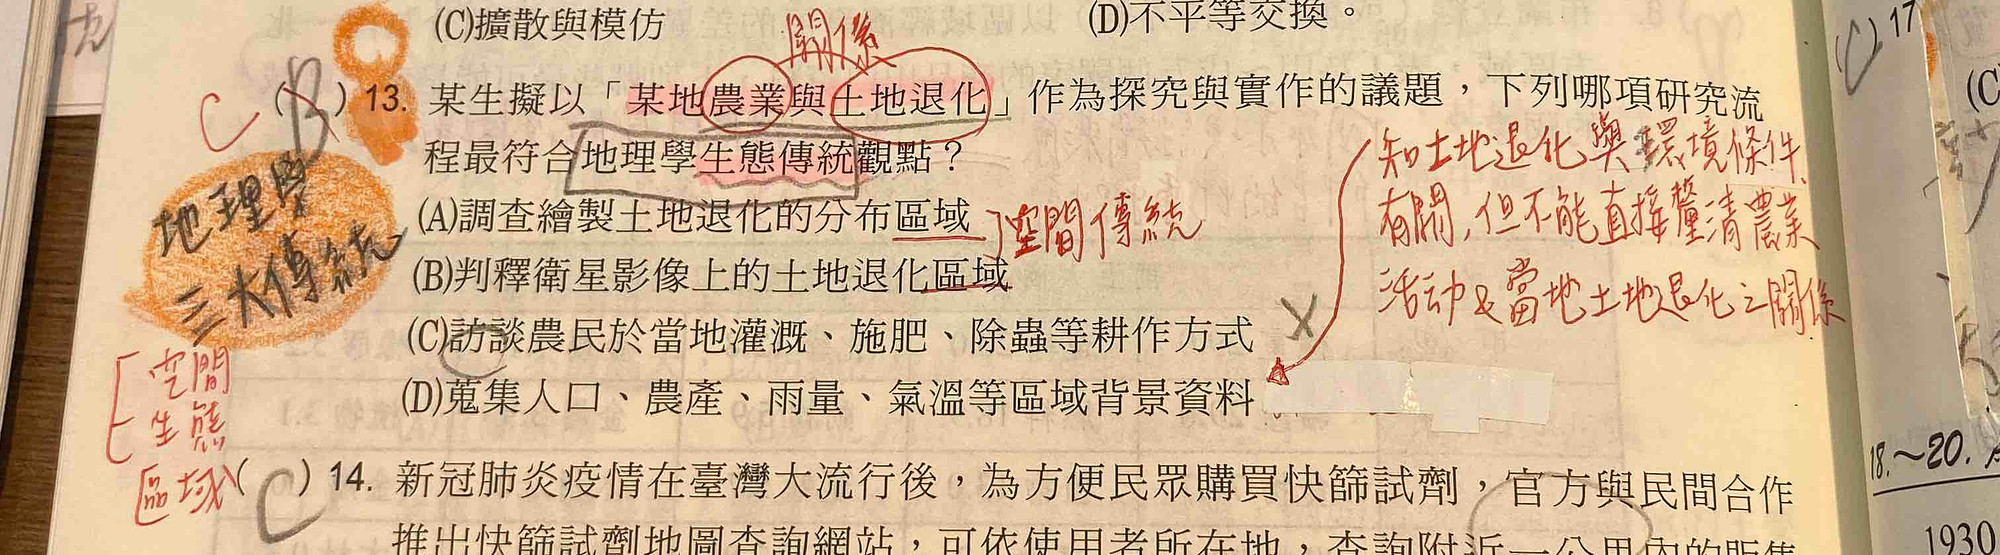 (C)擴散與模仿 (D)不平等交換。
關係
C (B) 13. 某生擬以「某地農業與土地退化」作為探究與實作的議題，下列哪項研究流
程最符合地理學生態傳統觀點？
(A)調查繪製土地退化的分布區域
空間傳統
(B)判釋衛星影像上的土地退化區域
(C)訪談農民於當地灌溉、施肥、除蟲等耕作方式
(D)蒐集人口、農產、雨量、氣溫等區域背景資料
知土地退化與環境條件
有關，但不能直接釐清農業
活动&當地土地退化之關係
地理學
三大傳統
空間
生態
區域
(C) 14. 新冠肺炎疫情在臺灣大流行後，為方便民眾購買快篩試劑，官方與民間合作
推出快篩試劑地圖查詢網站，可依使用者所在地，查詢附近一公里內的販售
(C) 17
(C
18.～20.
1930